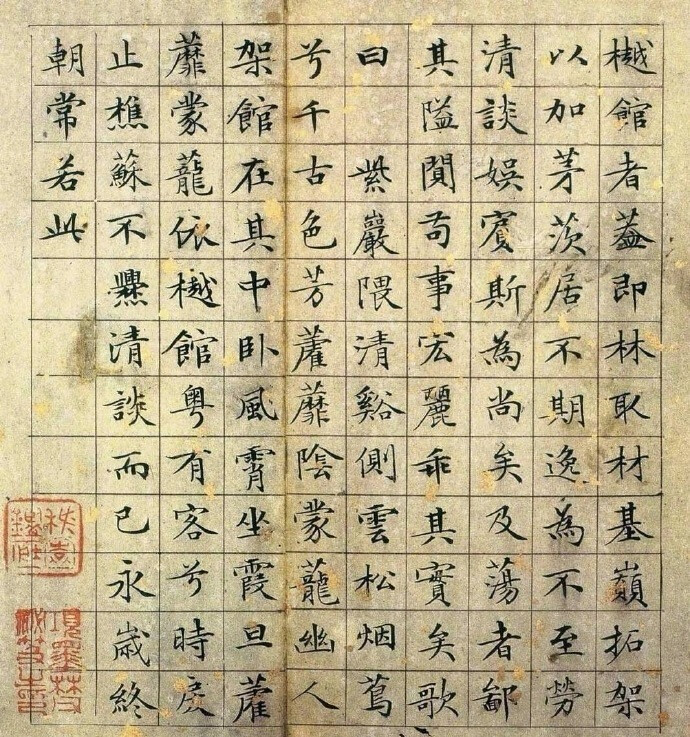 樾館者蓋即林取材基巔拓架
以加茅茨居不期逸為不至勞
清談娛賓斯為尚矣及蕩者鄙
其隘閴苟事宏麗乖其實矣歌
曰 紫巖隈清谿側雲松烟蔦
兮千古色芳藿蘼陰蒙蘢幽人
架館在其中臥風霄坐霞旦藿
蘼蒙蘢依樾館粵有客兮時戾
止樵蘇不爨清談而已永歲終
朝常若此
項墨林父
祕笈之印